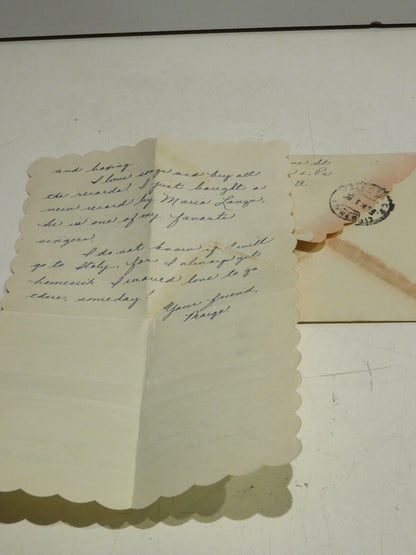 and boxing.
I love songs and buy all
the records! I just bought a
new record by Mario Lanza,
he is one of my favorite
singers!
I do not know if I will
go to Italy, for I always get
homesick I would love to go
there, someday!
Your friend,